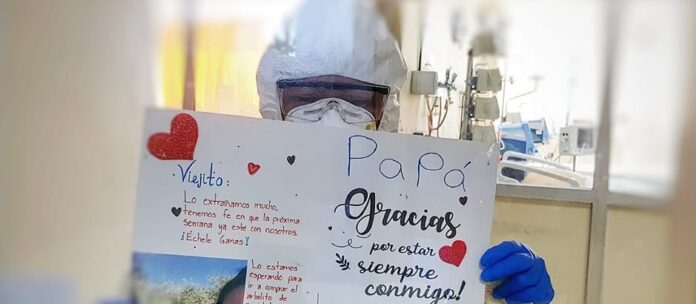 Viejito:
Lo extrañamos mucho,
tenemos fe en que la próxima
semana ya este con nosotros.
¡Échele Ganas!
Lo estamos
esperando para
ir a comprar el
arbolito de
PaPá
Gracias
por estar
siempre
conmigo!